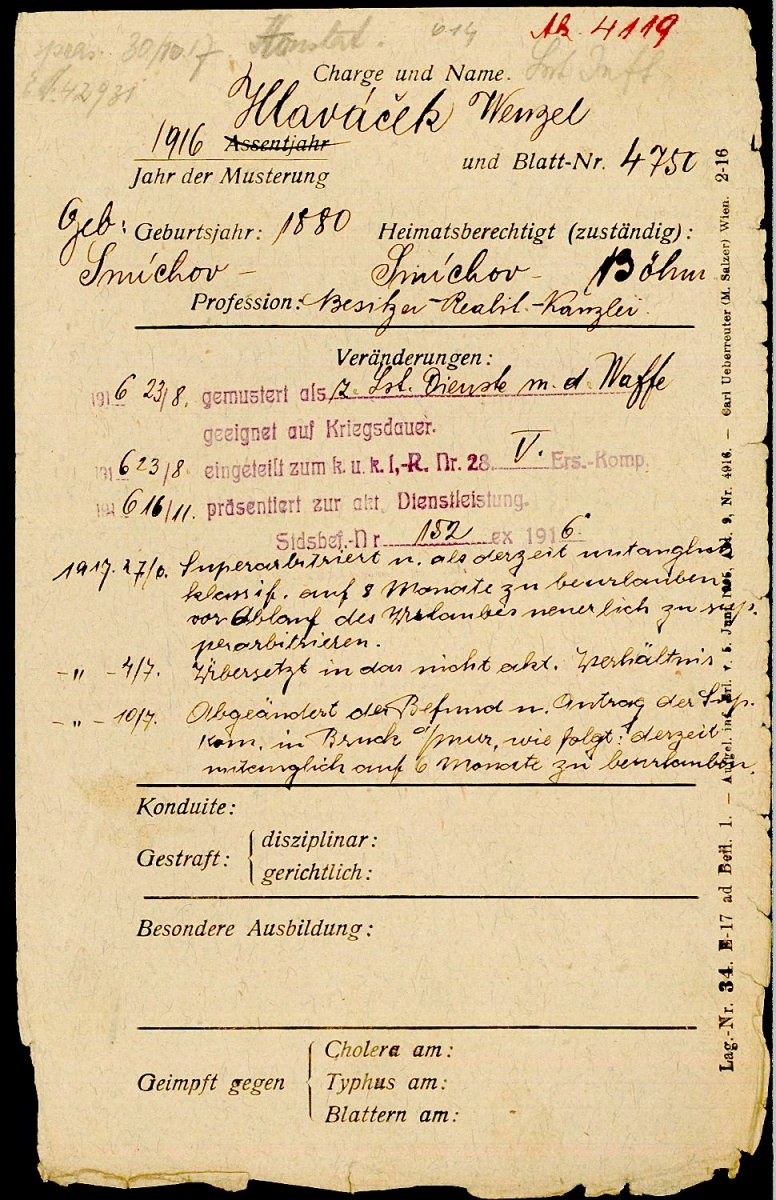 präs. 30/10.17. Konstat.
42931
Ak. 4119
Charge und Name.
Hlaváček Wenzel
1916 Assentjahr
Jahr der Musterung
und Blatt-Nr. 4750
Geb: Geburtsjahr: 1880 Heimatsberechtigt (zuständig):
Smíchov - Smíchov - Böhm
Profession: Besitzer Realit.-Kanzlei
Veränderungen:
1916 23/8. gemustert als z. Lst. Dienste m. d. Waffe
geeignet auf Kriegsdauer.
1916 23/8 eingeteilt zum k. u. k. I.-R. Nr. 28. V. Ers.-Komp.
1916 16/11. präsentiert zur akt. Dienstleistung.
Stdsbef.-Nr 152 ex 1916
1917. 27/6. Superarbitriert u. als derzeit untauglich
klassif. auf 8 Monate zu beurlauben
vor Ablauf des Urlaubes neuerlich zu su-
perarbitrieren.
-"- 4/7. Übersetzt in das nicht akt. Verhältnis
-"- 10/7. Abgeändert der Befund u. Antrag der Sup.
Kom. in Bruck a/mur, wie folgt: derzeit
untauglich auf 6 Monate zu beurlauben.
Konduite:
Gestraft: disziplinar:
gerichtlich:
Besondere Ausbildung:
Geimpft gegen
Cholera am:
Typhus am:
Blattern am:
Lag.-Nr. 34. E-17 ad Beil. 1. — 9, Nr. 4916. — Carl Ueberreuter (M. Salzer) Wien. 2-16